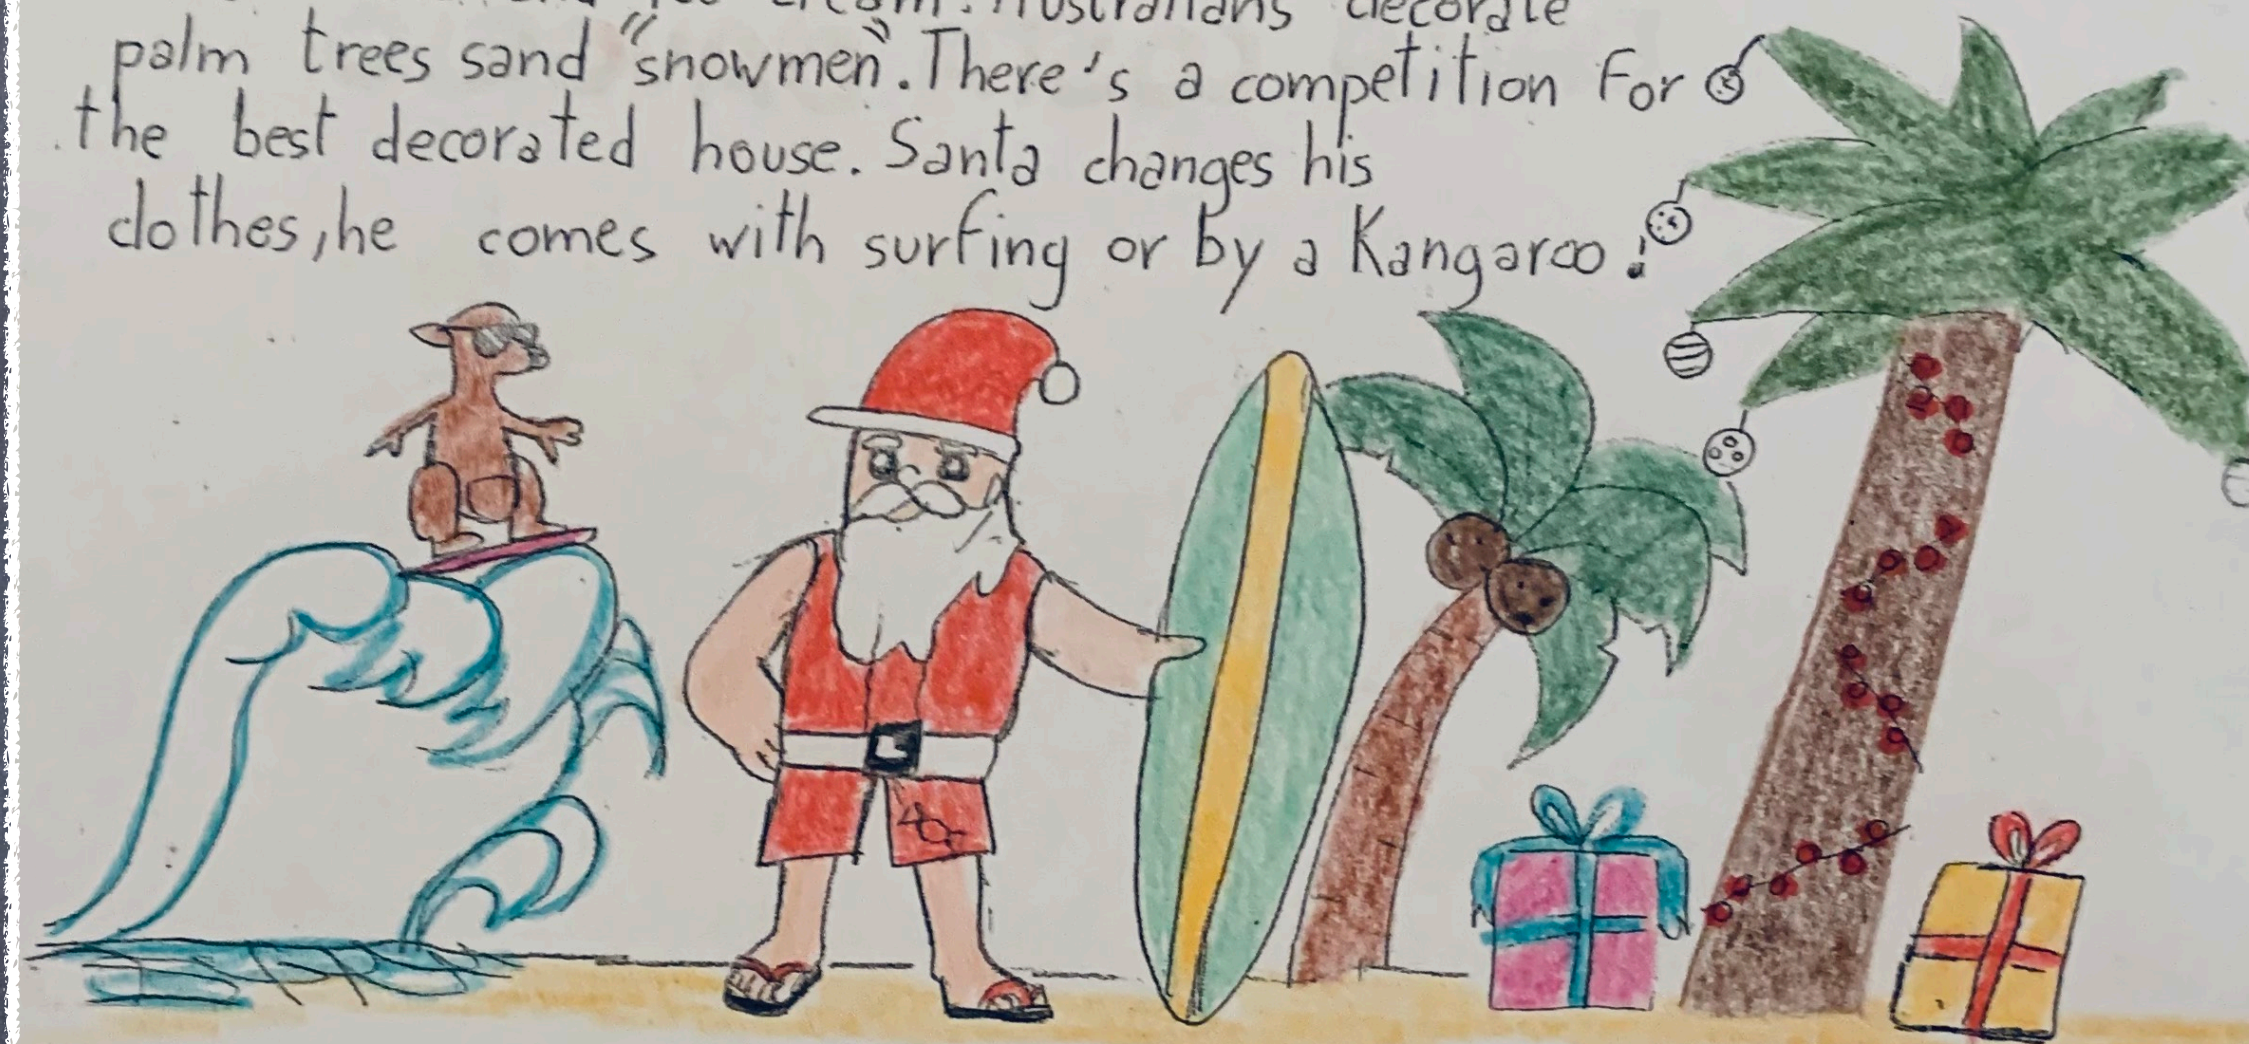 cream. Australians decorate
palm trees sand "snowmen". There's a competition for
the best decorated house. Santa changes his
clothes, he comes with surfing or by a Kangaroo!